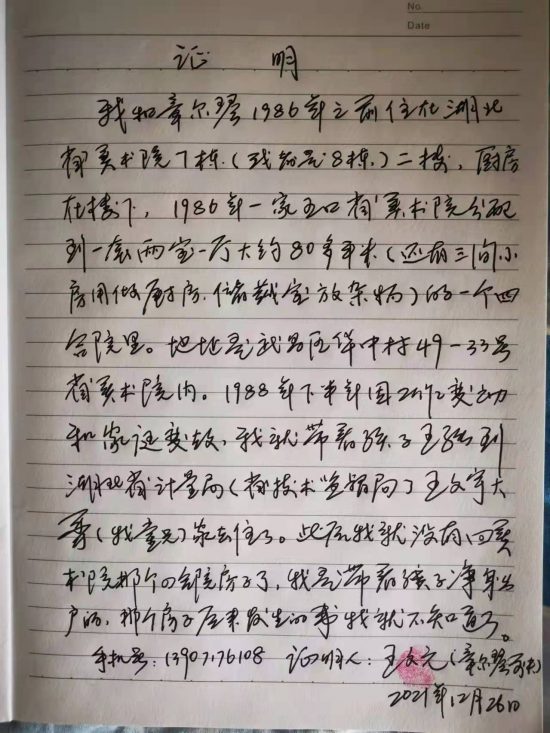 No.
Date
证 明
我和章尔琴1986年之前住在湖北
省美术院7栋（或铭是8栋）二楼，厨房
在楼下，1986年一家五口省美术院分配
到一套两室一厅大约80多平米（还有三间小
房用做厨房、储藏室放杂物）的一个四
合院里。地址是武昌区 中村49-33号
省美术院内。1988年下半年因工作变动
和家庭变故，我就带着孩子王 到
湖北省计量局（省技术监督局）王文宇大
哥（我堂兄）家去住了。此后我就没有回美
术院那个四合院房子了，我是带着孩子净身出
户的，那个房子后来发生的事我就不知道了。
手机号：13907176108 证明人：王文元（章尔琴 ）
2021年12月26日